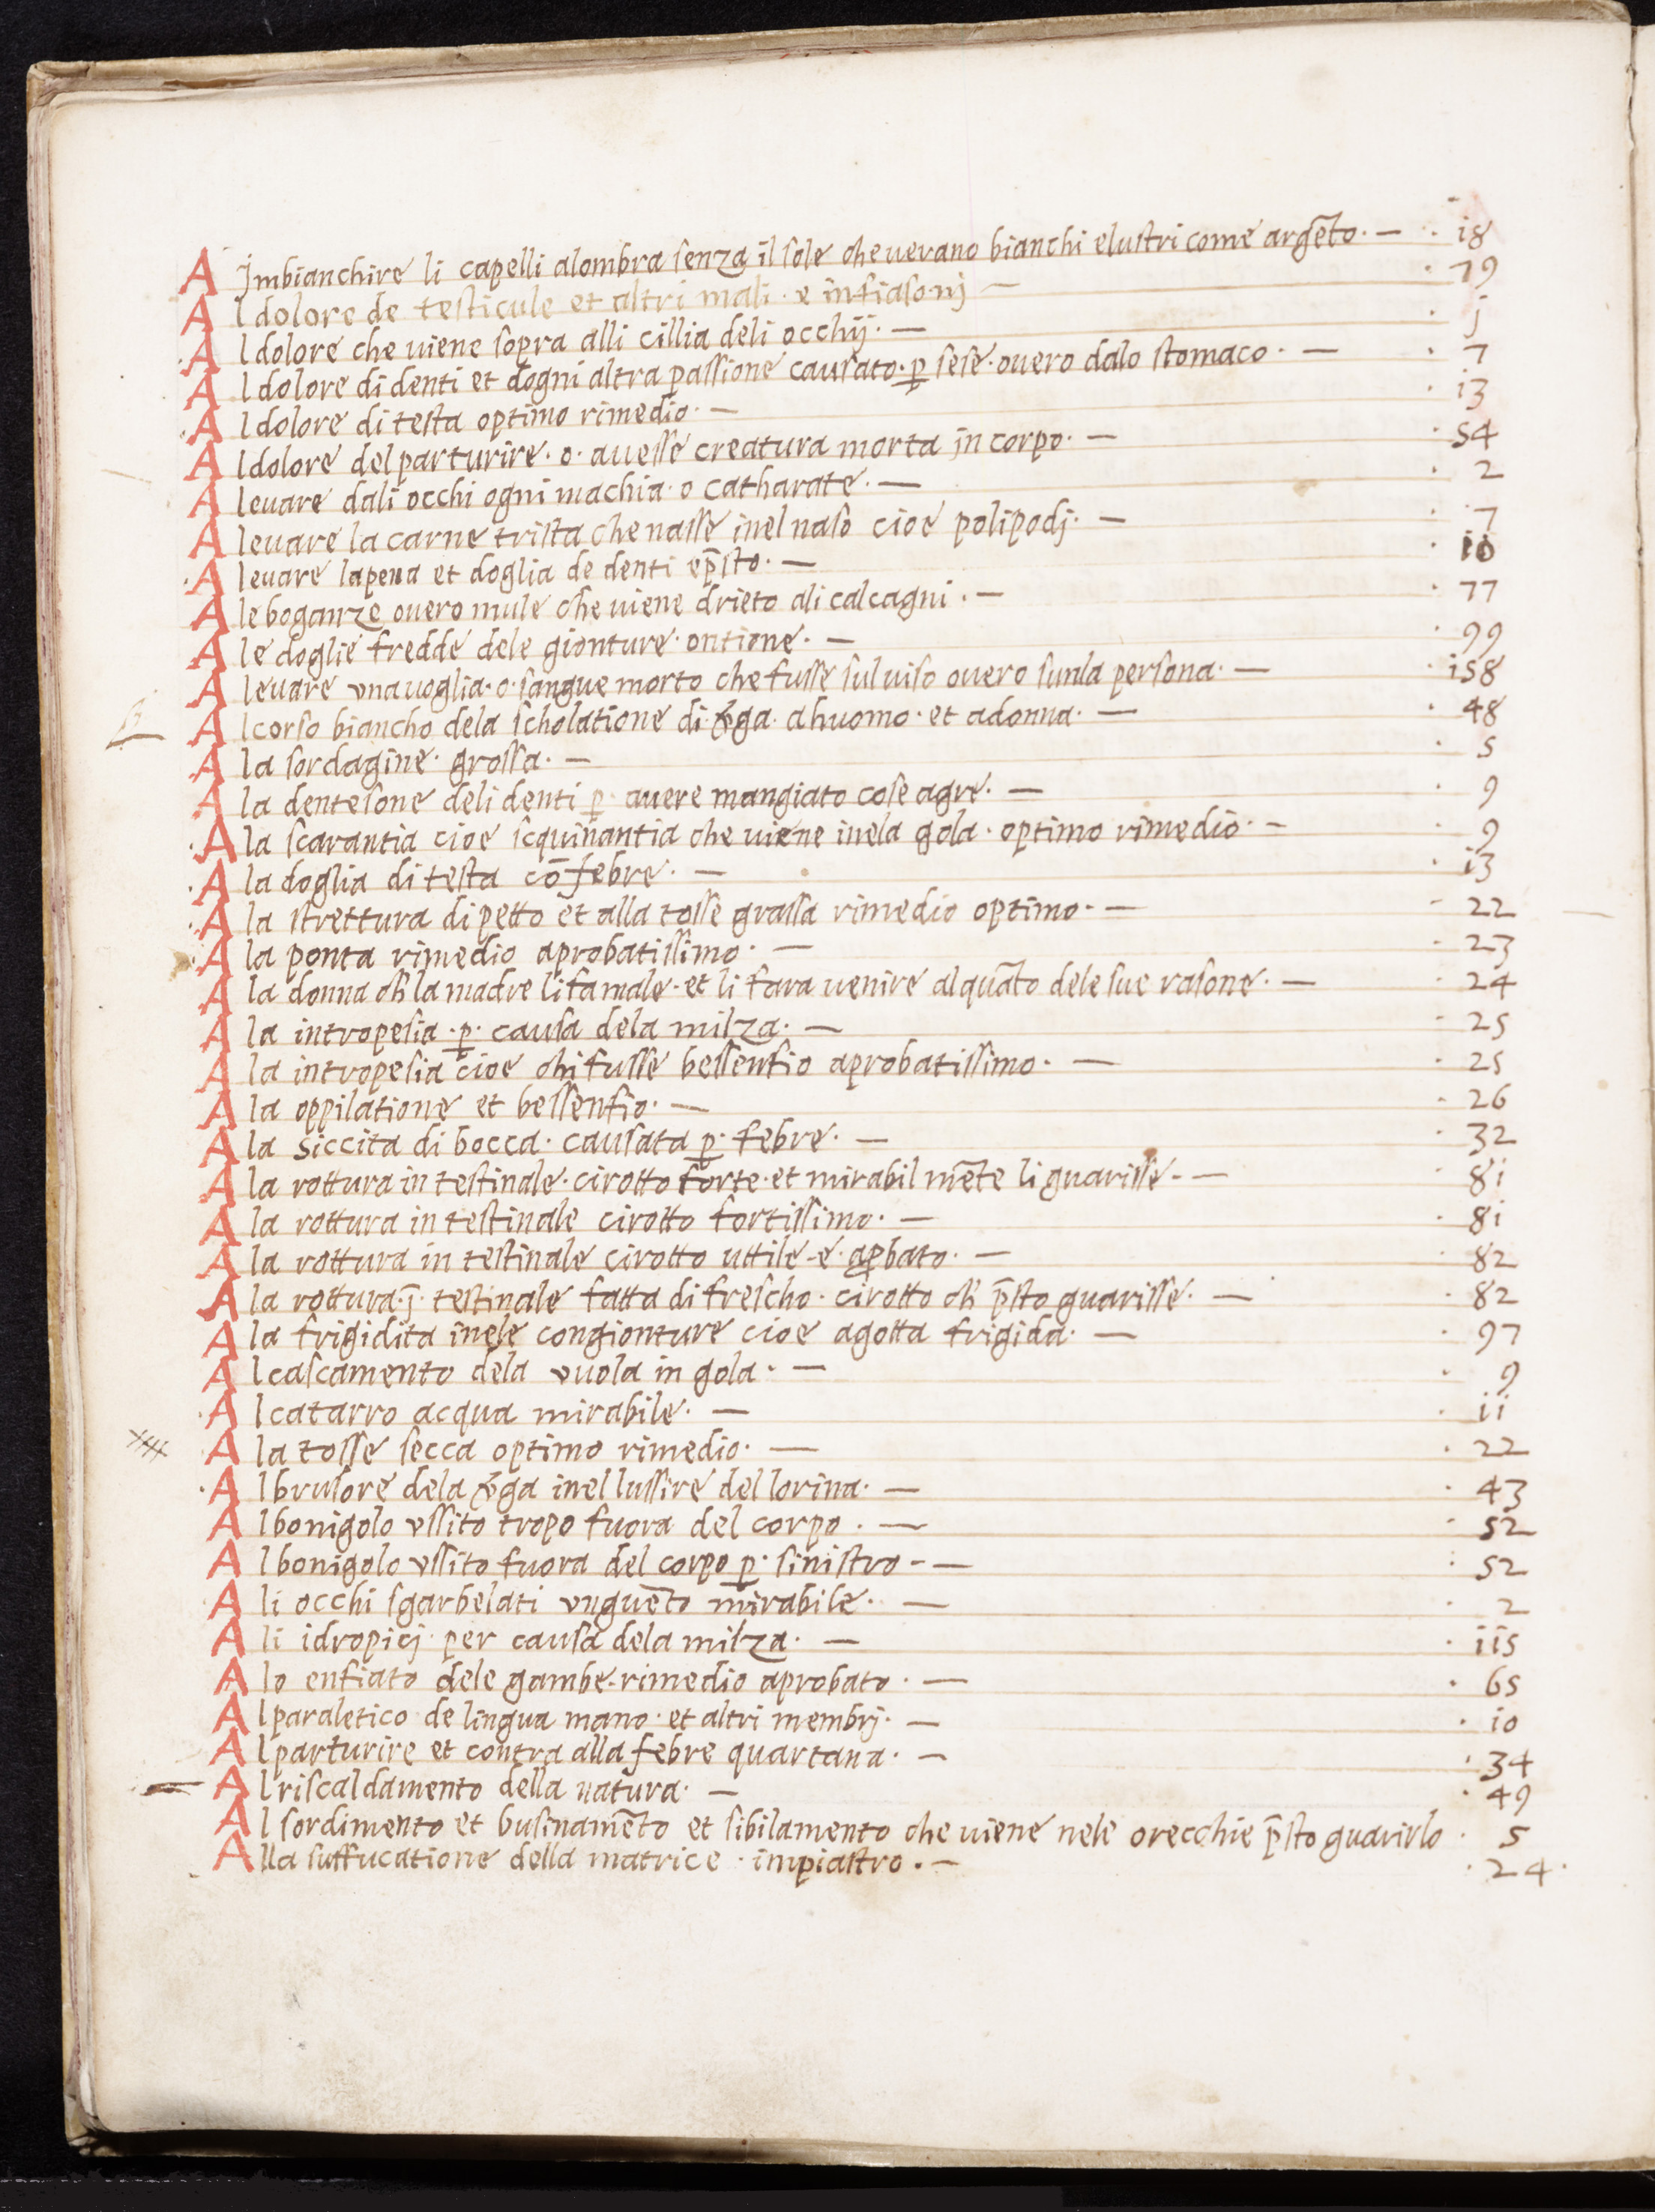 A Jmbianchire li capelli alombra senza il sole che uerano bianchi e lustri come argēto · — · i8
A l dolore de testicule et altri mali · e infiasonj — · 79
A l dolore che uiene sopra alli cillia deli occhij · — · j
A l dolore di denti et dogni altra passione causato · ꝑ sese · ouero dalo stomaco · — · 7
A l dolore di testa optimo rimedio · — · i3
A l dolore del parturire · o · auesse creatura morta in corpo · — · 54
A leuare dali occhi ogni machia · o catharate · — · 2
A leuare la carne trista che nasse inel naso cioe polipodj · — · 7
A leuare la pena et doglia de denti e p̄sto · — · i0
A le boganze ouero mule che uiene drieto ali calcagni · — · 77
A le doglie fredde dele gionture · ontione · — · 99
A leuare vna uoglia · o · sangue morto che fusse sul uiso ouero sunla persona · — · i58
A l corso biancho dela scholatione di ꝟga · a huomo · et a donna · — · 48
A la sordagine · grossa · — · 5
A la dentesone deli denti ꝑ · auere mangiato cose agre · — · 9
A la scarantia cioe scquinantia che uiene inela gola · optimo rimedio · — · 9
A la doglia di testa cō febre · — · i3
A la strettura di petto et alla tosse grassa rimedio optimo · — · 22
A la ponta rimedio aprobatissimo · — · 23
A la donna ch̄ la madre li fa male · et li fara uenire alquāto dele sue rasone · — · 24
A la intropesia · ꝑ · causa dela milza · — · 25
A la intropesia cioe chi fusse bessenfio aprobatissimo · — · 25
A la oppilatione et bessenfio · — · 26
A la siccita di bocca · causata ꝑ · febre · — · 32
A la rottura intestinale · cirotto forte · et mirabil mēte li guarisse · — · 8i
A la rottura intestinale cirotto fortissimo · — · 8i
A la rottura in testinale cirotto uttile · e · apꝛbato · — · 82
A la rottura · j̄ · testinale fatta di frescho · cirotto ch̄ p̄sto guarisse · — · 82
A la frigidita inele congionture cioe a gotta frigida · — · 97
A l cascamento dela vuola in gola · — · 9
A l catarro acqua mirabile · — · ii
A la tosse secca optimo rimedio · — · 22
A l brusore dela ꝟga inel lussire del lorina · — · 43
A l bonigolo vssito tropo fuora del corpo · — · 52
A l bonigolo vssito fuora del corpo ꝑ · sinistro · — · 52
A li occhi sgarbelati vnguēto mirabile · — · 2
A li idropicj · per causa dela milza · — · ii5
A lo enfiato dele gambe · rimedio aprobato · — · 65
A l paraletico de lingua mano · et altri membrj · — · i0
A l parturire et contra alla febre quartana · — · 34
A l riscaldamento della natura · — · 49
A l sordimento et businamēto et sibilamento che uiene nele orecchie p̄sto guarirlo · 5
A lla suffucatione della matrice · impiastro · — · 24 ·